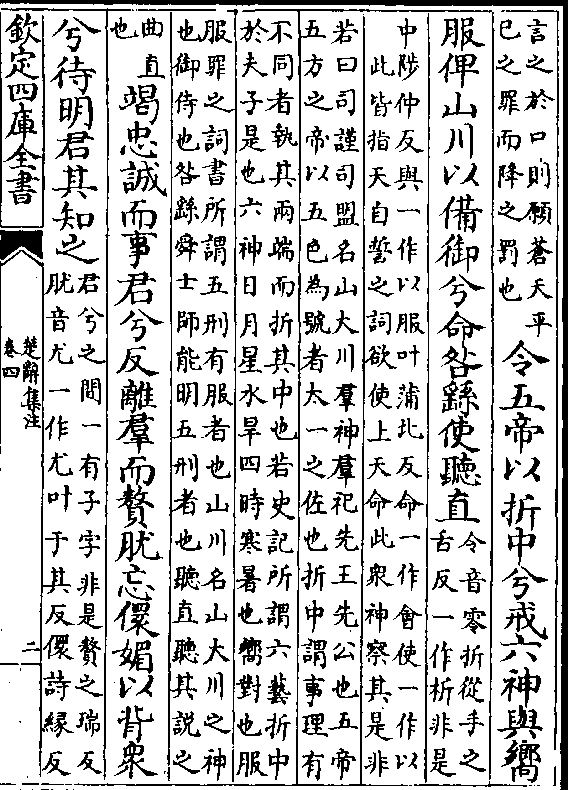 言之於口則願蒼天平
已之罪而降之罰也
令五帝以折中兮戒六神與嚮
服俾山川以備御兮命咎繇使聽直
令音零折從手之
舌反一作析非是
中陟仲反與一作以服叶蒲北反命一作會使一作以
此皆指天自誓之詞欲使上天命此衆神察其是非
若曰司謹司盟名山大川羣神羣祀先王先公也五帝
五方之帝以五色為號者太一之佐也折中謂事理有
不同者執其兩端而折其中也若史記所謂六藝折中
於夫子是也六神日月星水旱四時寒暑也嚮對也服
服罪之詞書所謂五刑有服者也山川名山大川之神
也御侍也咎繇舜士師能明五刑者也聽直聽其說之
曲直
也
竭忠誠而事君兮反離羣而贅肬忘儇媚以背衆
兮待明君其知之
君兮之間一有子字非是贅之瑞反
肬音尤一作尤叶于其反儇詩緣反
欽定四庫全書
楚辭集注
卷四
二